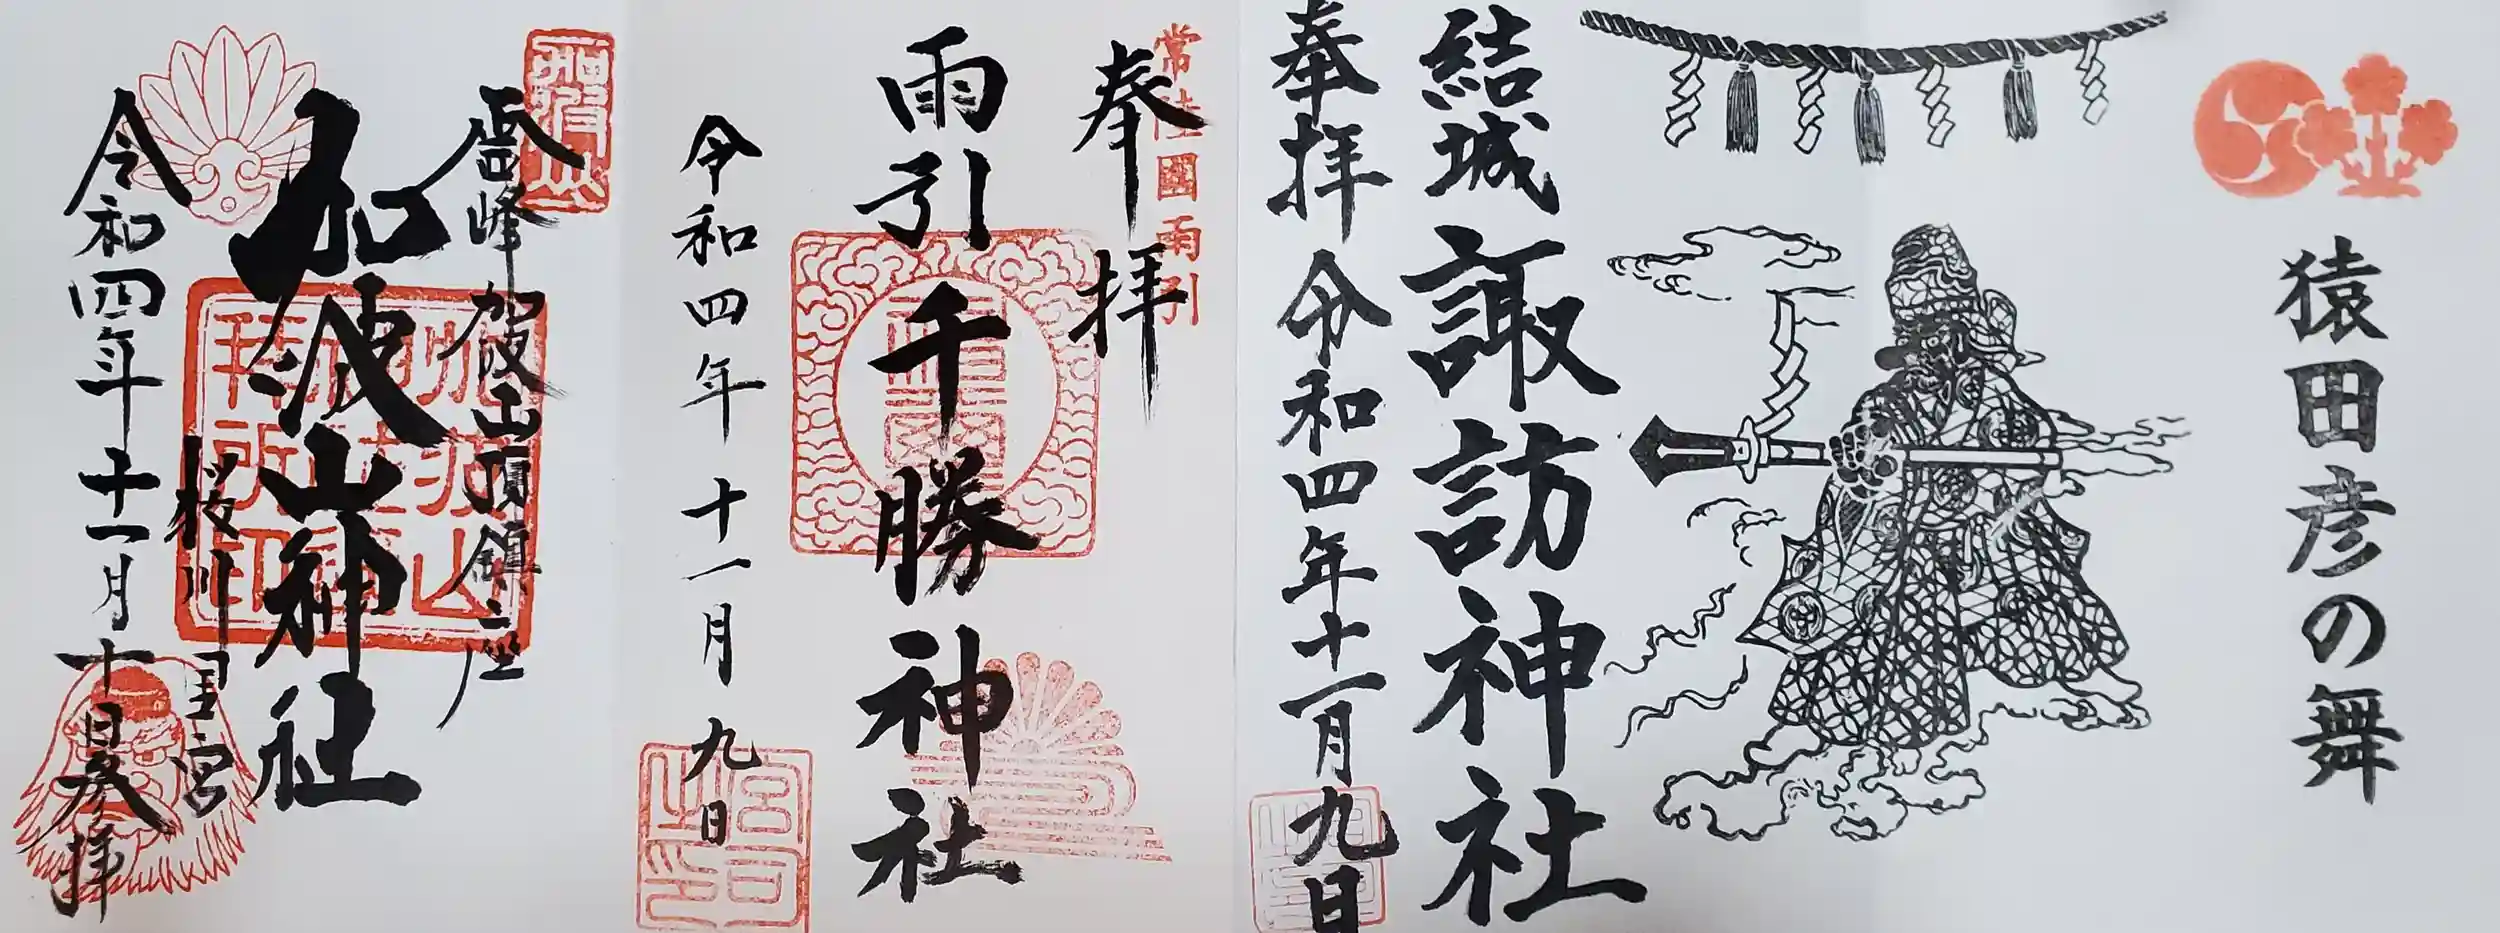 猿田彦の舞
結城諏訪神社
奉拝 令和四年十一月九日
常陸國雨引
奉拝
雨引千勝神社
令和四年十一月九日
宮司之印
加波山
霊峰 加波山頂鎮座
加波山神社
桜川 里宮
令和四年十一月十日参拝